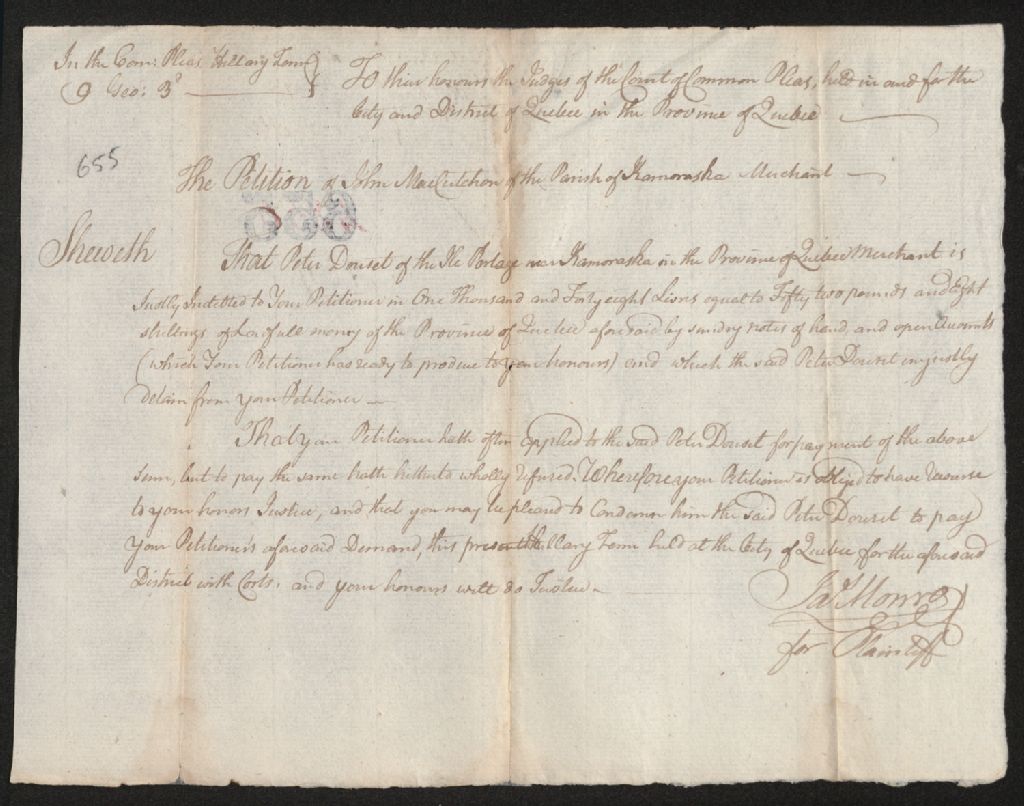 In the Com: Pleas Hillary Term
9 Geo: 3d
To their honours the Judges of the Court of Common Pleas, held in and for the
City and District of Quebec in the Province of Quebec
655
The Petition of John MacCutchon of the Parish of Kamoraska Merchant
Sheweth
That Peter Douset of the Ile Portage near Kamoraska in the Province of Quebec Merchant is
Justly Indebted to Your Petitioner in One Thousand and Forty eight Livrs equal to Fifty two pounds and Eight
shillings of Lafull money of the Province of Quebec aforesaid by sundry notes of hand, and open Accounts
(which Your Petitioner has ready to produce to your honours) and which the said Peter Douset unjustly
detain from your Petitioner
That your Petitioner hath often applied to the said Peter Douset for payment of the above
Sum, but to pay the same hath hitherto wholly refused, Wherefore your Petitioner is obliged to have recourse
to your honors Justice, and that you may be pleased to Condemn him the said Peter Douset to pay
Your Petitioner's aforesaid Demand, this present Hillary Term held at the City of Quebec for the aforesaid
District with Costs, and your honours will do Justice
Jas Monro
for Plaintiff